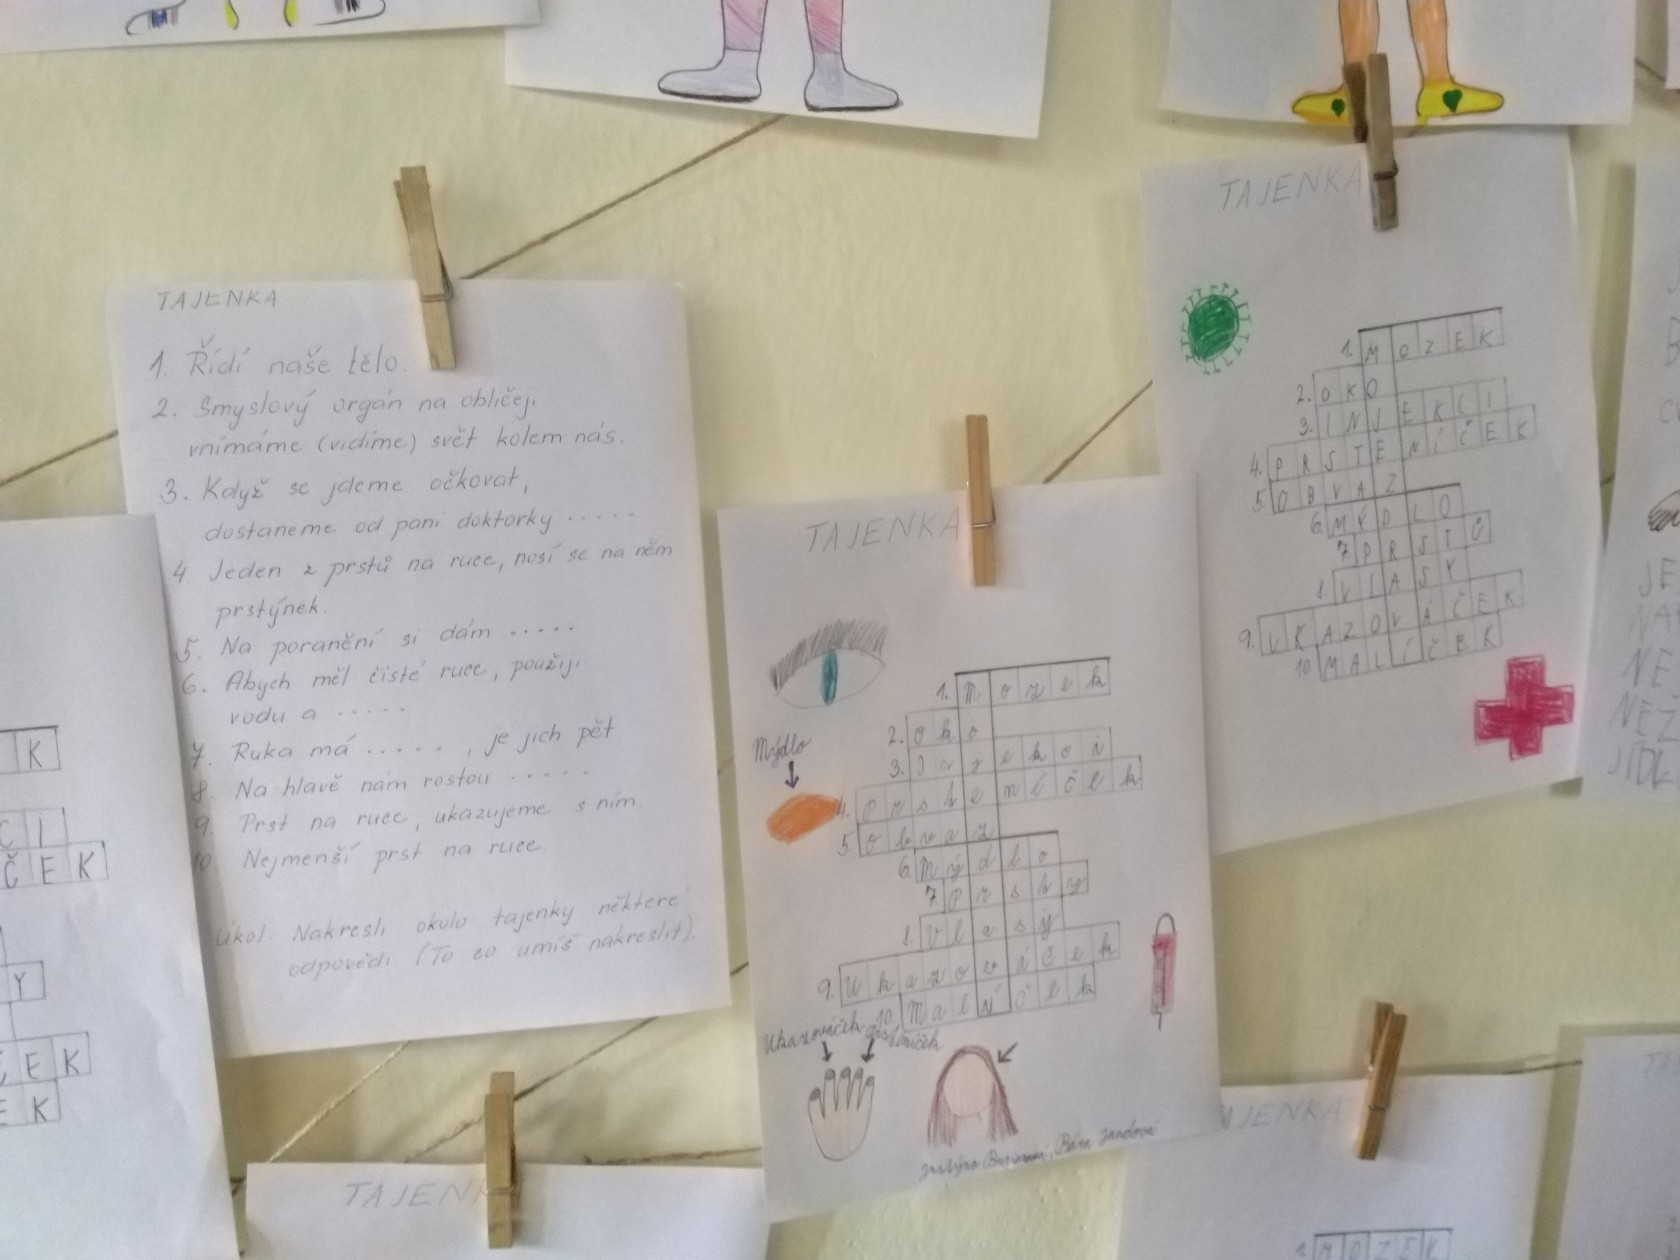 TAJENKA
1. Řídí naše tělo.
2. Smyslový orgán na obličeji
vnímáme (vidíme) svět kolem nás.
3. Když se jdeme očkovat,
dostaneme od paní doktorky .....
4 Jeden z prstů na ruce, nosí se na něm
prstýnek.
5. Na poranění si dám .....
6. Abych měl čisté ruce, použiji
vodu a .....
7. Ruka má ....., je jich pět
8. Na hlavě nám rostou .....
9. Prst na ruce, ukazujeme s ním.
10. Nejmenší prst na ruce.
Úkol: Nakresli okolo tajenky některé
odpovědi (To co umíš nakreslit).
TAJENKA
1. Mozek
2. Oko
3. Injekci
4. Prsteníček
5. Obvaz
6. Mýdlo
7 Prsty
8. Vlasy
9. Ukazováček
10. Malíček
Mýdlo
Ukazováček
Bára Jandová
TAJENKA
1. MOZEK
2. OKO
3. INJEKCI
4. PRSTENÍČEK
5. OBVAZ
6. MÝDLO
7 PRSTŮ
8. VLASY
9. UKAZOVÁČEK
10. MALÍČEK
K
CI
ČEK
Y
ČEK
EK
TAJENKA
TAJENKA
1. MOZEK
JE
NA
NE
NEZ
JÍDL